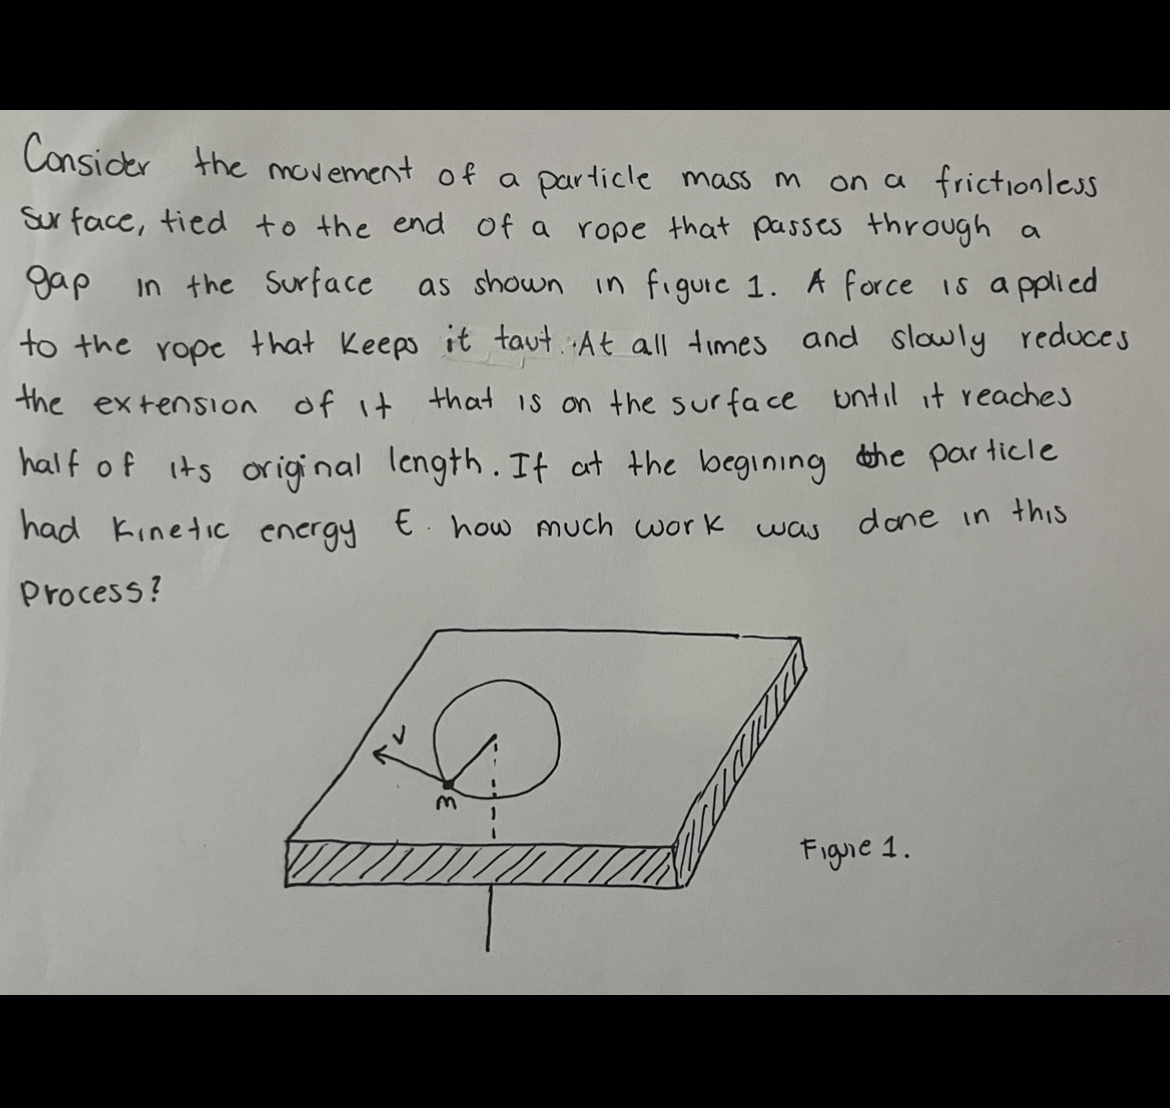 Consider the movement of a particle mass m on a frictionless
surface, tied to the end of a rope that passes through a
gap in the surface as shown in figure 1. A force is applied
to the rope that keeps it taut. At all times and slowly reduces
the extension of it that is on the surface until it reaches
half of its original length. If at the begining the particle
had kinetic energy E. how much work was done in this
process?
v
m
Figure 1.